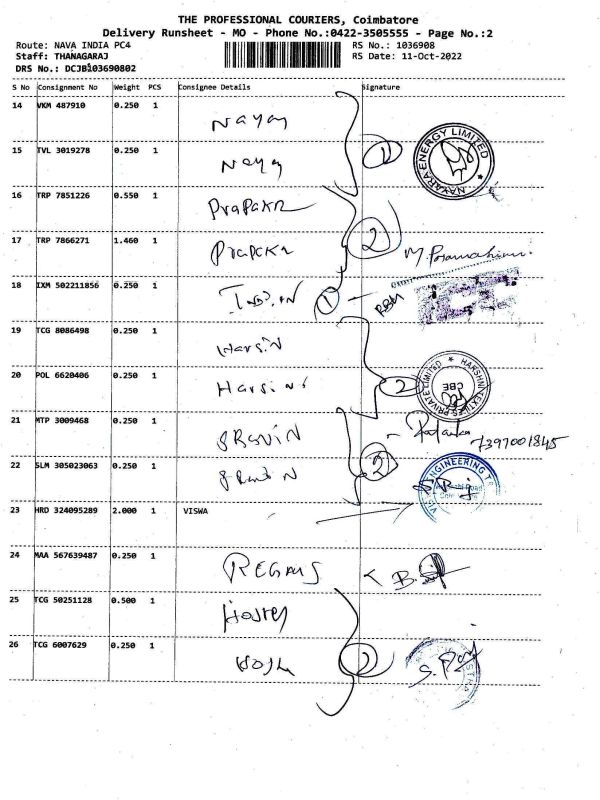 THE PROFESSIONAL COURIERS, Coimbatore
Delivery Runsheet - MO - Phone No.:0422-3505555 - Page No.:2
Route: NAVA INDIA PC4 RS No.: 1036908
Staff: THANAGARAJ RS Date: 11-Oct-2022
DRS No.: DCJB103690802
S No Consignment No Weight PCS Consignee Details Signature
14 VKM 487910 0.250 1 Nayay
15 TVL 3019278 0.250 1 1
NAYARA ENERGY LIMITED
16 TRP 7851226 0.550 1 PraPakr
17 TRP 7866271 1.460 1 Prapakr 2
18 IXM 502211856 0.250 1 1
19 TCG 8086498 0.250 1 Harsin
20 POL 6620406 0.250 1 Harsini 2
HARSHNI TEXTILES PRIVATE LIMITED CBE
21 MTP 3009468 0.250 1 7397001845
22 SLM 305023063 0.250 1 2
ENGINEERING
23 HRD 324095289 2.000 1 VISWA
24 MAA 567639487 0.250 1
25 TCG 50251128 0.500 1
26 TCG 6007629 0.250 1 2